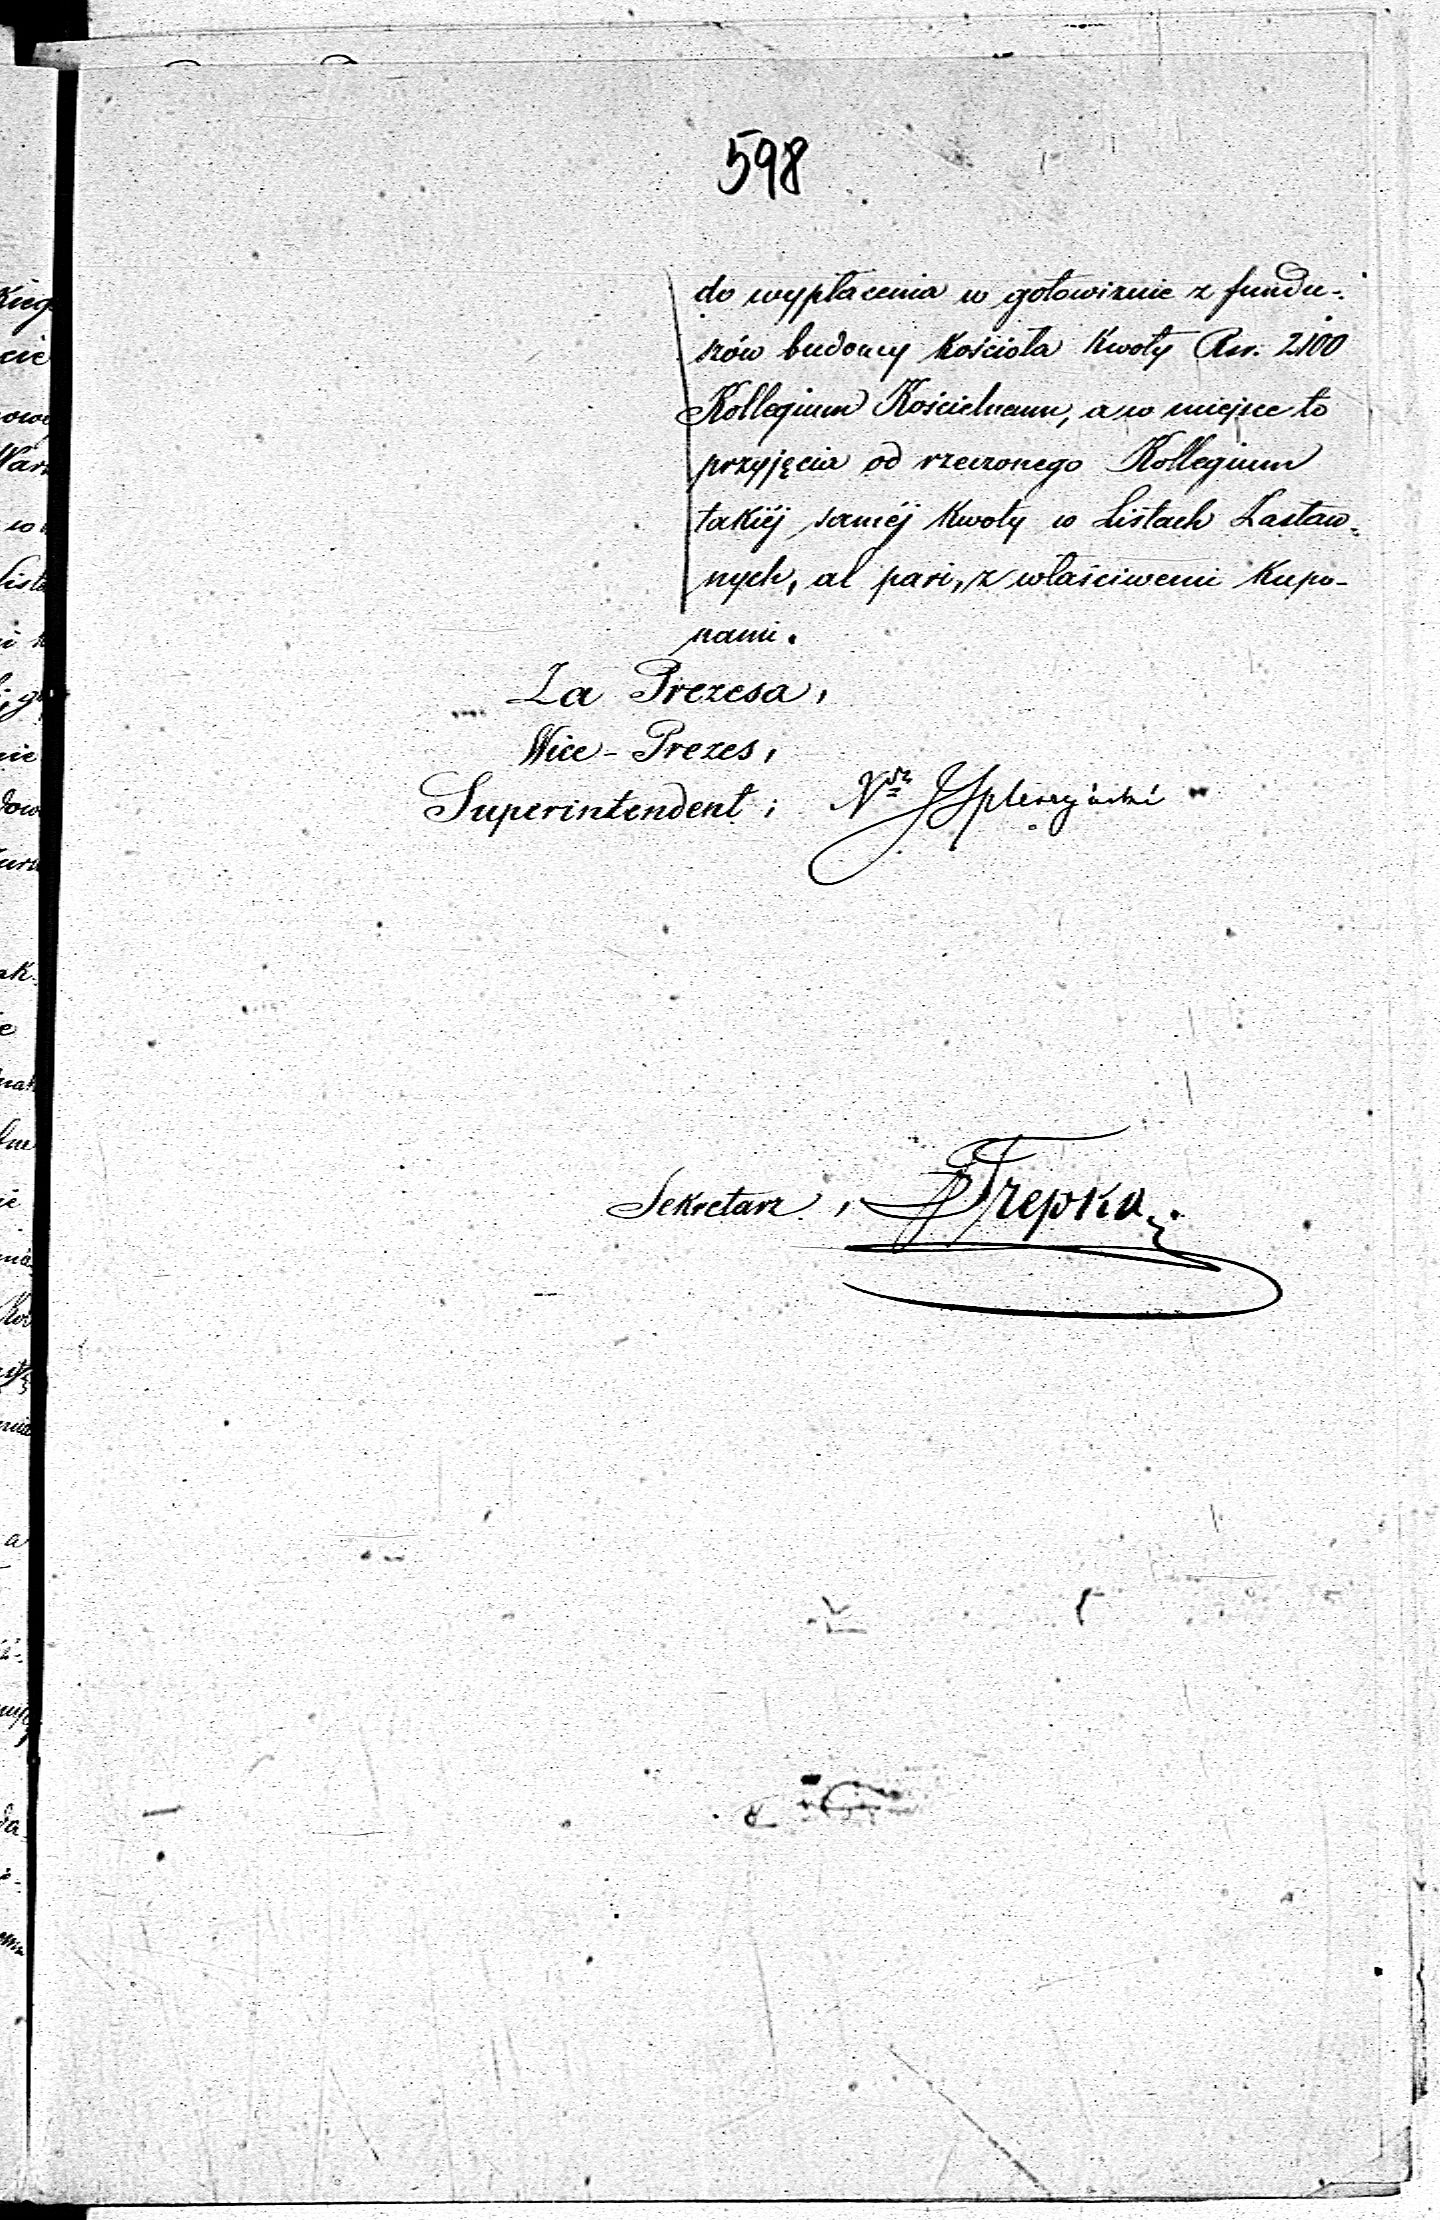 598
do wypłacenia w gotowiznie z fundu-
szów budowy Kościoła Kwoty Rsr. 2100
Kollegium Kościelnemu, a w miejsce to
przyjęcia od rzeczonego Kollegium
takiéj saméj Kwoty w Listach Zastaw-
nych, al pari, z właściwemi Kupo-
nami.
Za Prezesa,
Vice-Prezes,
Superintendent,
Sekretarz, Trepka